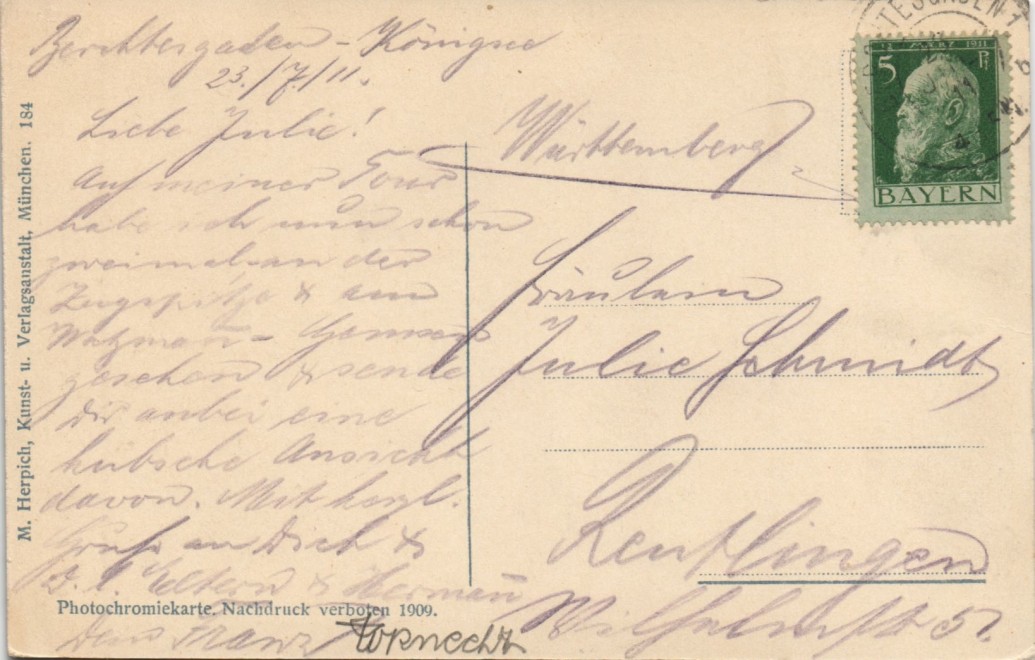 Berchtesgaden - Königsee
23./7/11.
Liebe Julie!
Auf meiner Tour
habe ich nun schon
zweimal an der
Zugspitze & am
Watzman - Gemsen
gesehen & sende
Dir anbei eine
hübsche Ansicht
davon. Mit herzl.
Gruß an Dich &
D. l. Eltern & Herman
Dein Franz
Photochromiekarte. Nachdruck verboten 1909.
M. Herpich, Kunst- u. Verlagsanstalt, München. 184
5 Pf
1911
BAYERN
Württemberg
Fräulein
Julie Schmidt
Reutlingen